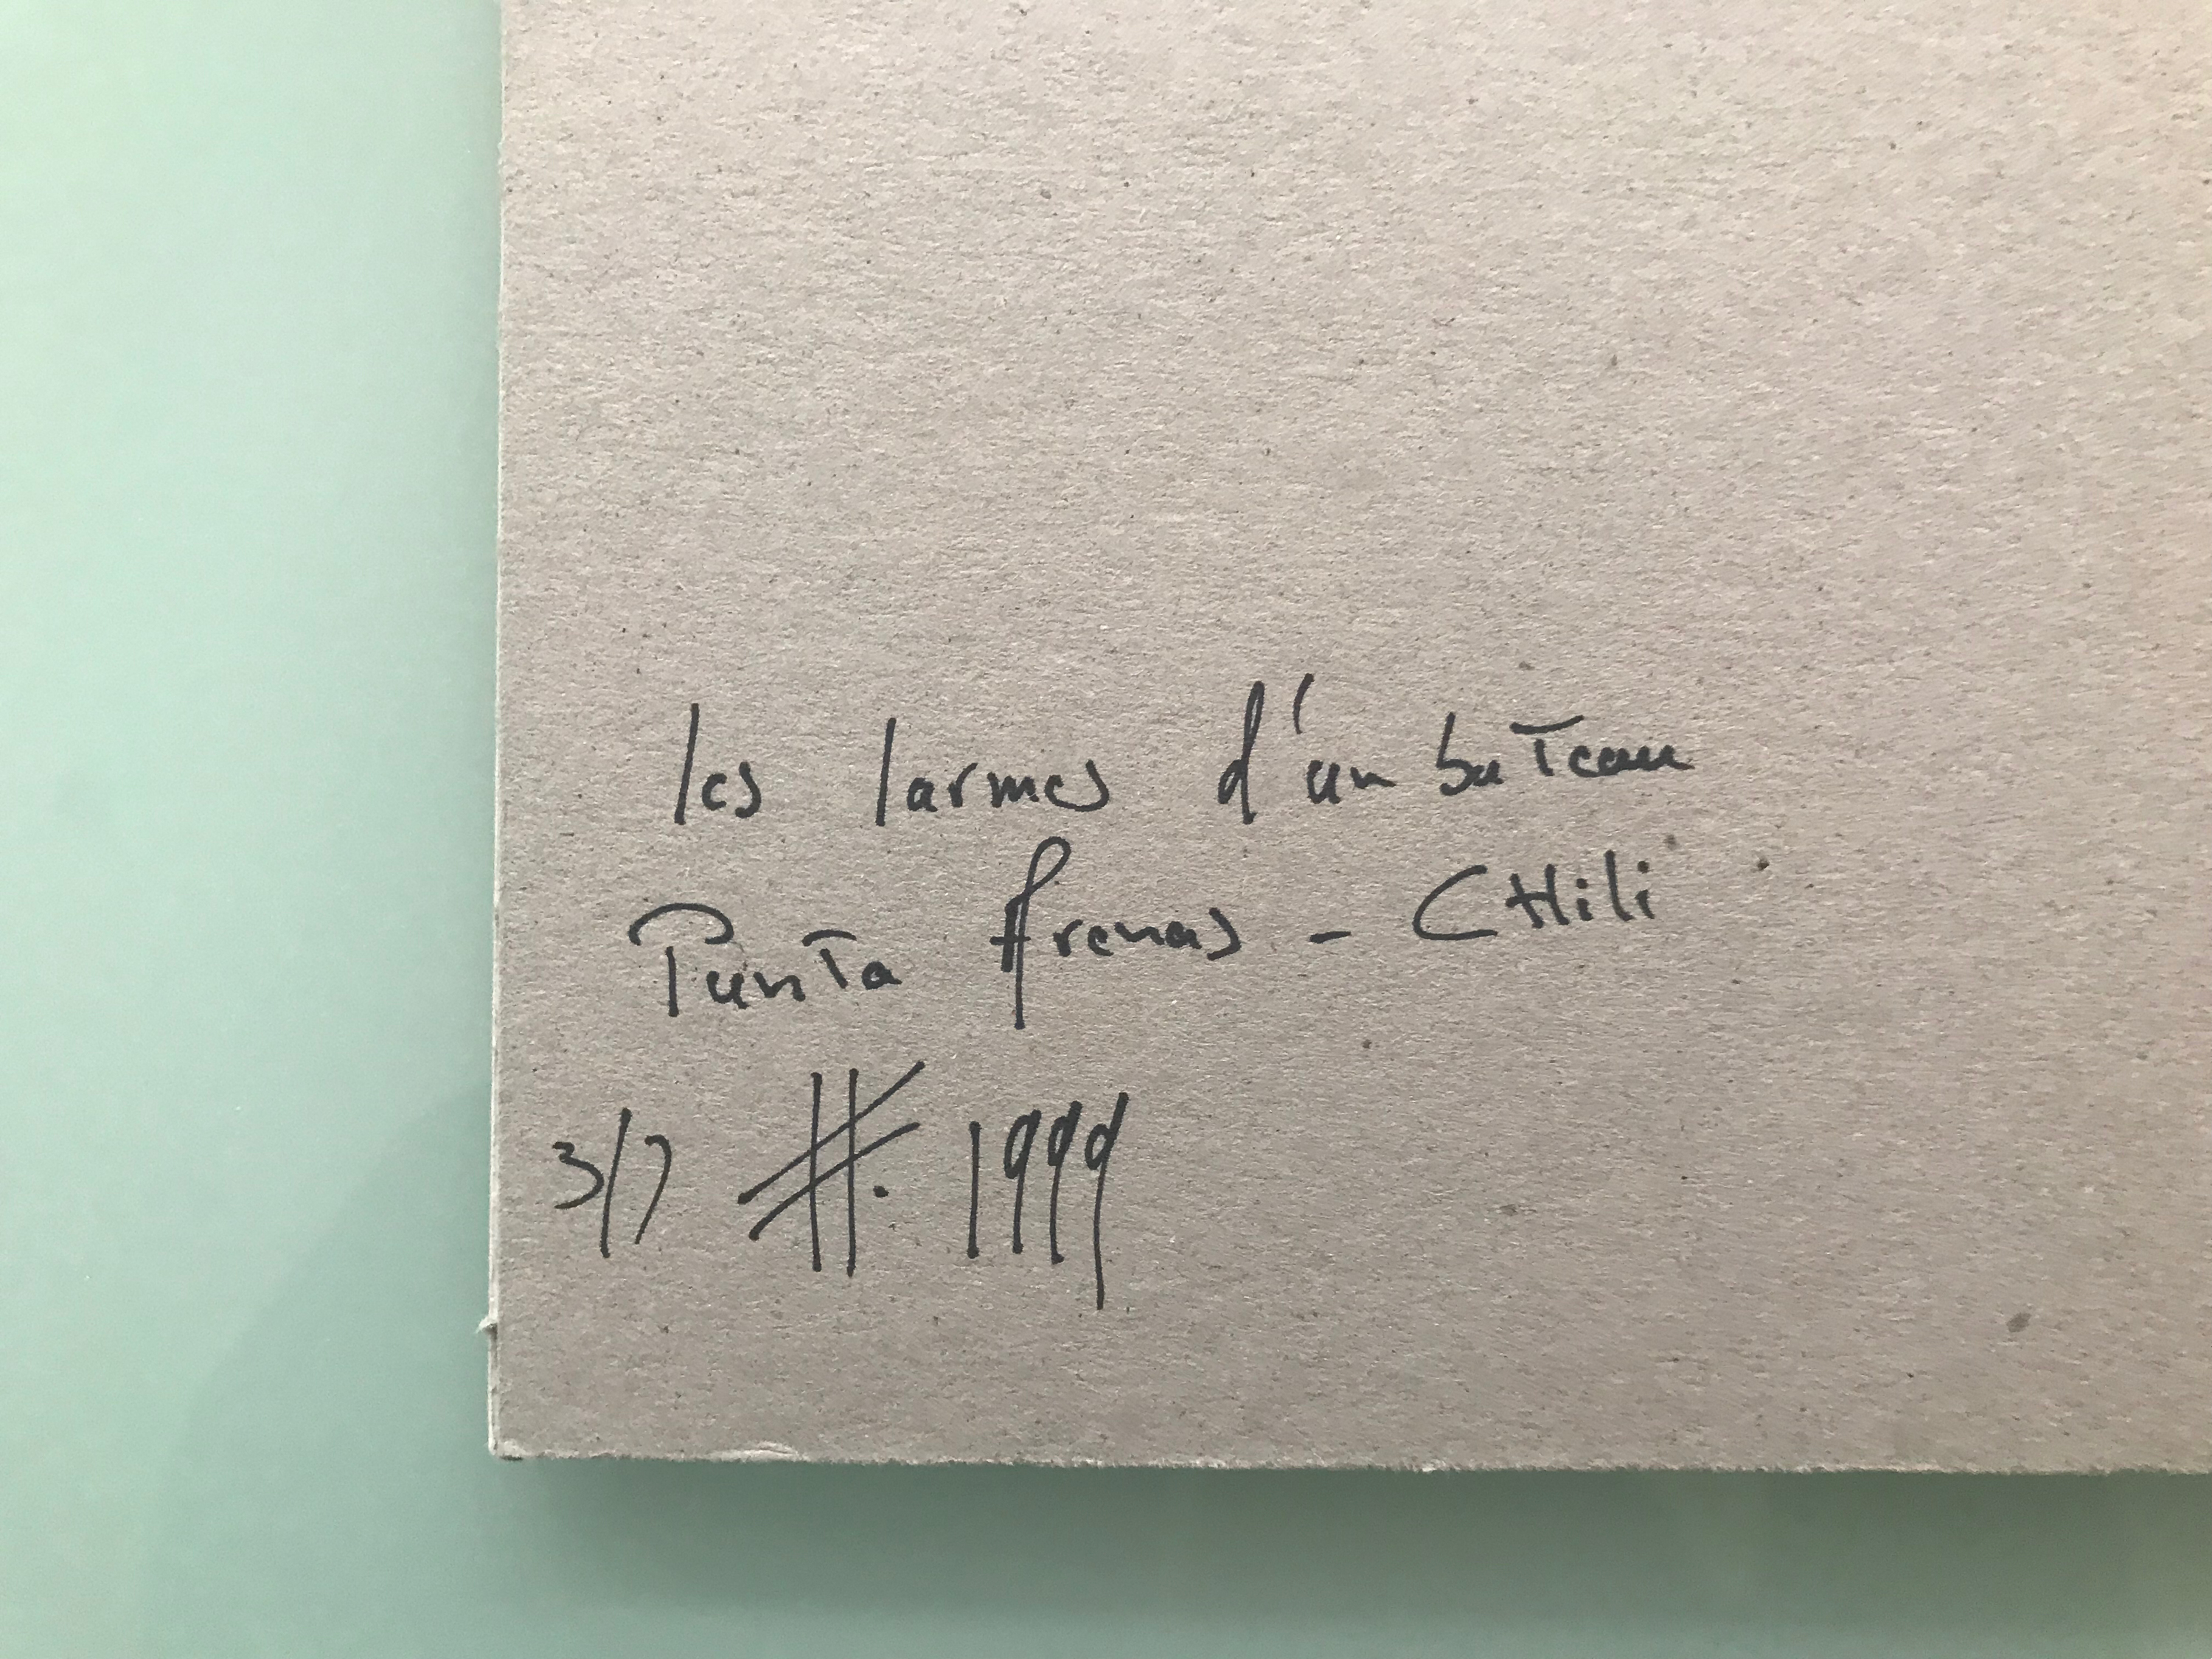 les larmes d'un bateau
Punta Arenas - CHili
3/7 #. 1999